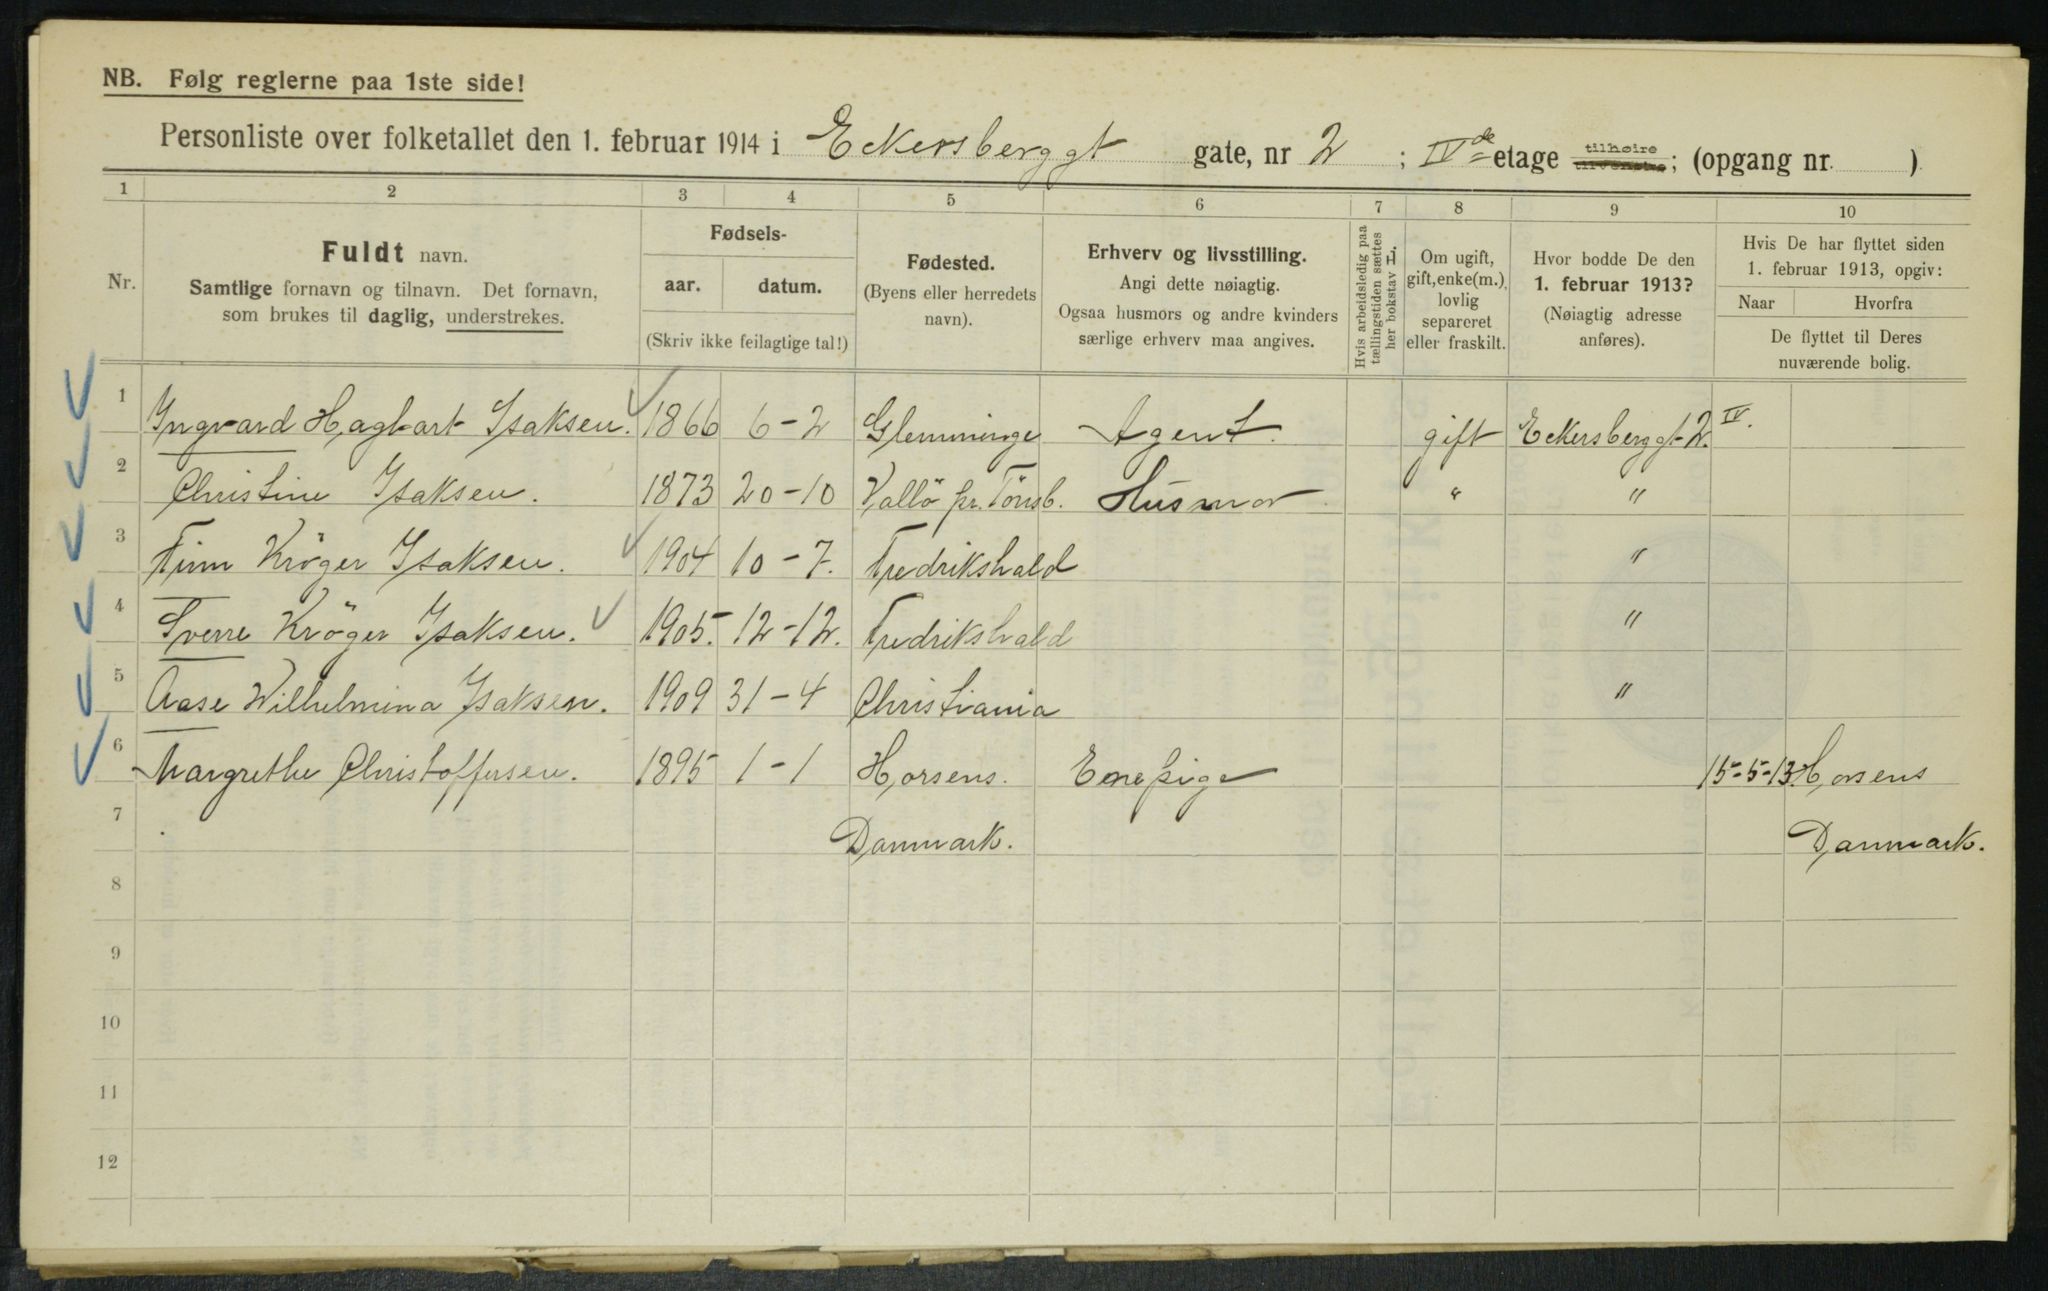 NB. Følg reglerne paa 1ste side!
Personliste over folketallet den 1. februar 1914 i Eckersberggt gate, nr 2 ; IV de etage tilhøire tilvenstre; (opgang nr. )
1 2 3 4 5 6 7 8 9 10
Nr.
Fuldt navn.
Samtlige fornavn og tilnavn. Det fornavn,
som brukes til daglig, understrekes.
Fødsels-
aar. datum.
(Skriv ikke feilagtige tal!)
Fødested.
(Byens eller herredets
navn).
Erhverv og livsstilling.
Angi dette nøiagtig.
Ogsaa husmors og andre kvinders
særlige erhverv maa angives.
Hvis arbeidsledig paa
tællingstiden sættes
her bokstav L.
Om ugift,
gift, enke(m.),
lovlig
separeret
eller fraskilt.
Hvor bodde De den
1. februar 1913?
(Nøiagtig adresse
anføres).
Hvis De har flyttet siden
1. februar 1913, opgiv:
Naar Hvorfra
De flyttet til Deres
nuværende bolig.
1 Ingvard Hagbart Isaksen. 1866 6-2 Glemminge Agent. gift Eckersberggt 2. IV.
2 Christine Isaksen. 1873 20-10 Vallö pr. Tönsb. Husmor. " "
3 Finn Kröger Isaksen. 1904 10-7. Fredrikshald "
4 Sverre Kröger Isaksen. 1905. 12-12. Fredrikshald "
5 Aase Wilhelmina Isaksen. 1909 31-4 Christiania "
6 Margrethe Christoffersen. 1895 1-1 Horsens. Enepige 15-5-13. Horsens
7 Danmark. Danmark.
8
9
10
11
12